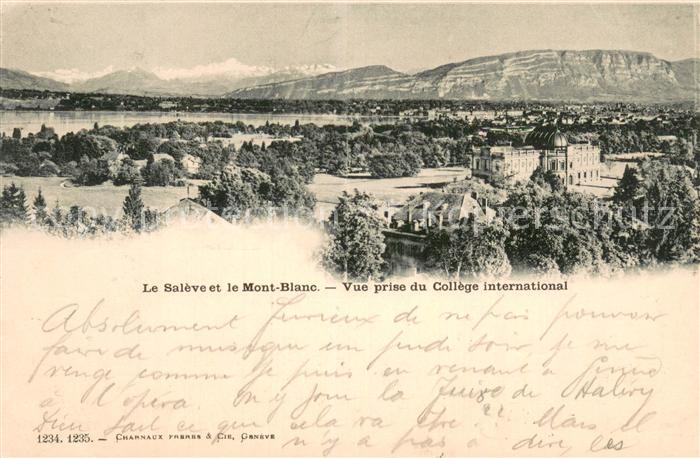 Le Salève et le Mont-Blanc. — Vue prise du Collège international
Absolument furieux de ne pas pouvoir
faire de musique un jeudi soir, je me
venge comme je puis en venant à Genève
à l'opéra. On y joue la Juive de Halévy
Dieu sait ce que cela va être ?! Mais il
n'y a pas à dire, les
1234. 1235. — Charnaux Frères & Cie, Genève